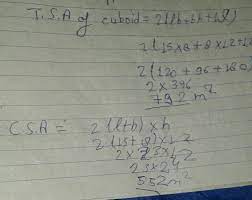 T.S.A of cuboid = 2(lb+bh+hl)
2(15x8+8x12+12
2(120+96+180)
2x396
792 m²
C.S.A = 2(l+b)xh
2(15+8)x12
2x23x12
23x24
552m²